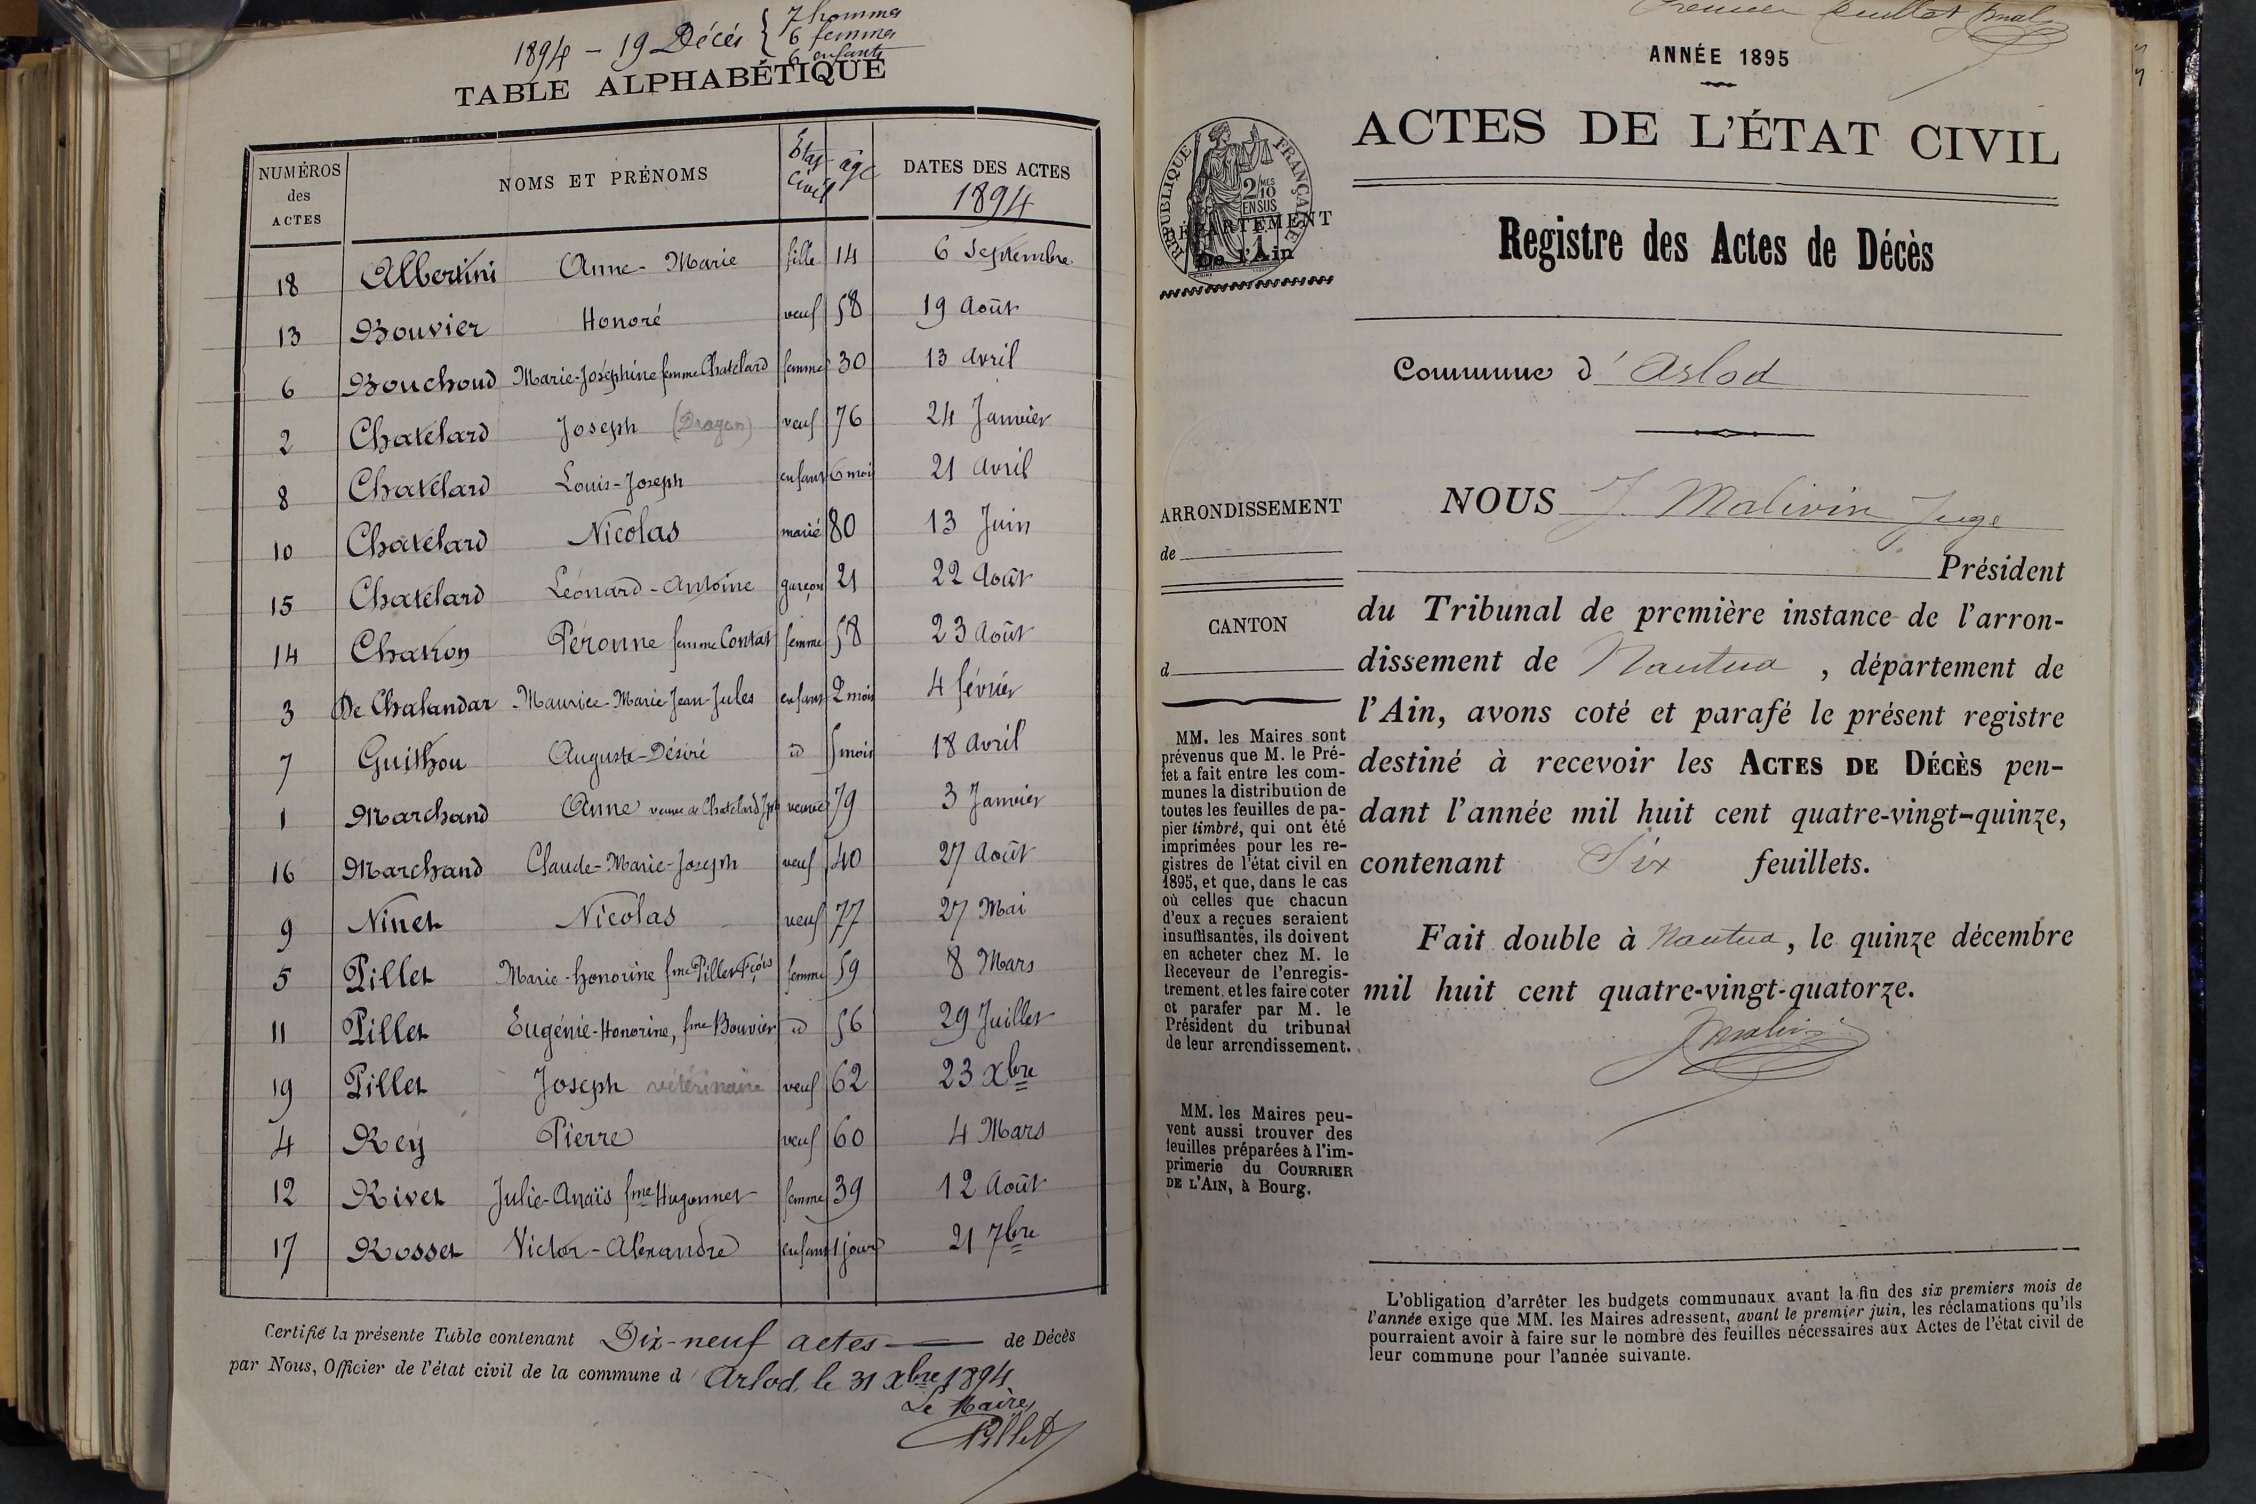 1894 - 19 Décés { 7 hommes
6 femmes
6 enfants
TABLE ALPHABÉTIQUE
NUMÉROS des ACTES | NOMS ET PRÉNOMS | État civil | âge | DATES DES ACTES 1894
18 Albertini Anne-Marie fille 14 6 Septembre
13 Bouvier Honoré veuf 58 19 Août
6 Bouchoud Marie-Joséphine femme Chatelard femme 30 13 avril
2 Chatélard Joseph (Dragon) veuf 76 24 Janvier
8 Chatélard Louis-Joseph enfant 6 mois 21 avril
10 Chatélard Nicolas marié 80 13 Juin
15 Chatélard Léonard-Antoine garçon 21 22 Août
14 Chatron Péronne femme Contat femme 58 23 Août
3 De Chalandar Maurice-Marie-Jean-Jules enfant 2 mois 4 février
7 Guithou Auguste-Désiré id 5 mois 18 avril
1 Marchand Anne veuve de Chatelard Jph veuve 79 3 Janvier
16 Marchand Claude-Marie-Joseph veuf 40 27 Août
9 Ninet Nicolas veuf 77 27 Mai
5 Pillet Marie-honorine fme Pillet Fçois femme 59 8 Mars
11 Pillet Eugénie-Honorine, fme Bouvier id 56 29 Juillet
19 Pillet Joseph vétérinaire veuf 62 23 Xbre
4 Rey Pierre veuf 60 4 Mars
12 Rivet Julie-Anaïs fme Hugonnet femme 39 12 Août
17 Rosset Victor-Alexandre enfant 1 jour 21 7bre
Certifié la présente Table contenant Dix-neuf actes de Décès
par Nous, Officier de l'état civil de la commune d'Arlod, le 31 Xbre 1894
Le Maire,
Pillet
Premier feuillet
ANNÉE 1895
ACTES DE L'ÉTAT CIVIL
RÉPUBLIQUE FRANÇAISE
2/10 MES
EN SUS
DÉPARTEMENT
De l'Ain
Registre des Actes de Décès
Commune d'Arlod
ARRONDISSEMENT
de
CANTON
d
MM. les Maires sont
prévenus que M. le Pré-
fet a fait entre les com-
munes la distribution de
toutes les feuilles de pa-
pier timbré, qui ont été
imprimées pour les re-
gistres de l'état civil en
1895, et que, dans le cas
où celles que chacun
d'eux a reçues seraient
insuffisantes, ils doivent
en acheter chez M. le
Receveur de l'enregis-
trement, et les faire coter
et parafer par M. le
Président du tribunal
de leur arrondissement.
MM. les Maires peu-
vent aussi trouver des
feuilles préparées à l'im-
primerie du COURRIER
DE L'AIN, à Bourg.
NOUS J. Malivin Juge
Président
du Tribunal de première instance de l'arron-
dissement de Nantua, département de
l'Ain, avons coté et parafé le présent registre
destiné à recevoir les ACTES DE DÉCÈS pen-
dant l'année mil huit cent quatre-vingt-quinze,
contenant Six feuillets.
Fait double à Nantua, le quinze décembre
mil huit cent quatre-vingt-quatorze.
J Malivin
L'obligation d'arrêter les budgets communaux avant la fin des six premiers mois de
l'année exige que MM. les Maires adressent, avant le premier juin, les réclamations qu'ils
pourraient avoir à faire sur le nombre des feuilles nécessaires aux Actes de l'état civil de
leur commune pour l'année suivante.